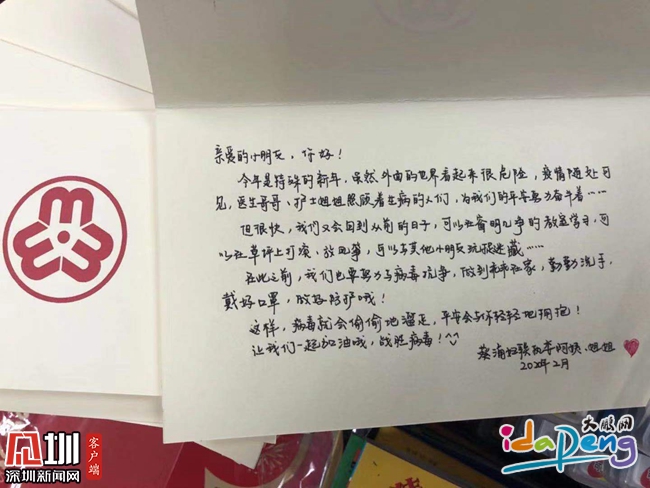 亲爱的小朋友，你好！
今年是特殊的新年，虽然外面的世界看起来很危险，疫情随处可
见，医生哥哥、护士姐姐照顾着生病的人们，为我们的平安努力奋斗着……
但很快，我们又会回到从前的日子，可以在窗明几净的教室学习，可
以在草坪上打滚、放风筝，可以与其他小朋友玩捉迷藏……
在此之前，我们也要努力与病毒抗争，做到乖乖在家，勤勤洗手，
戴好口罩，做好防护哦！
这样，病毒就会偷偷地溜走，平安会与你轻轻地拥抱！
让我们一起加油哦，战胜病毒！^^
葵涌妇联 阿姨、姐姐
2020年2月
深圳新闻网
客户端
大鹏网
idapeng